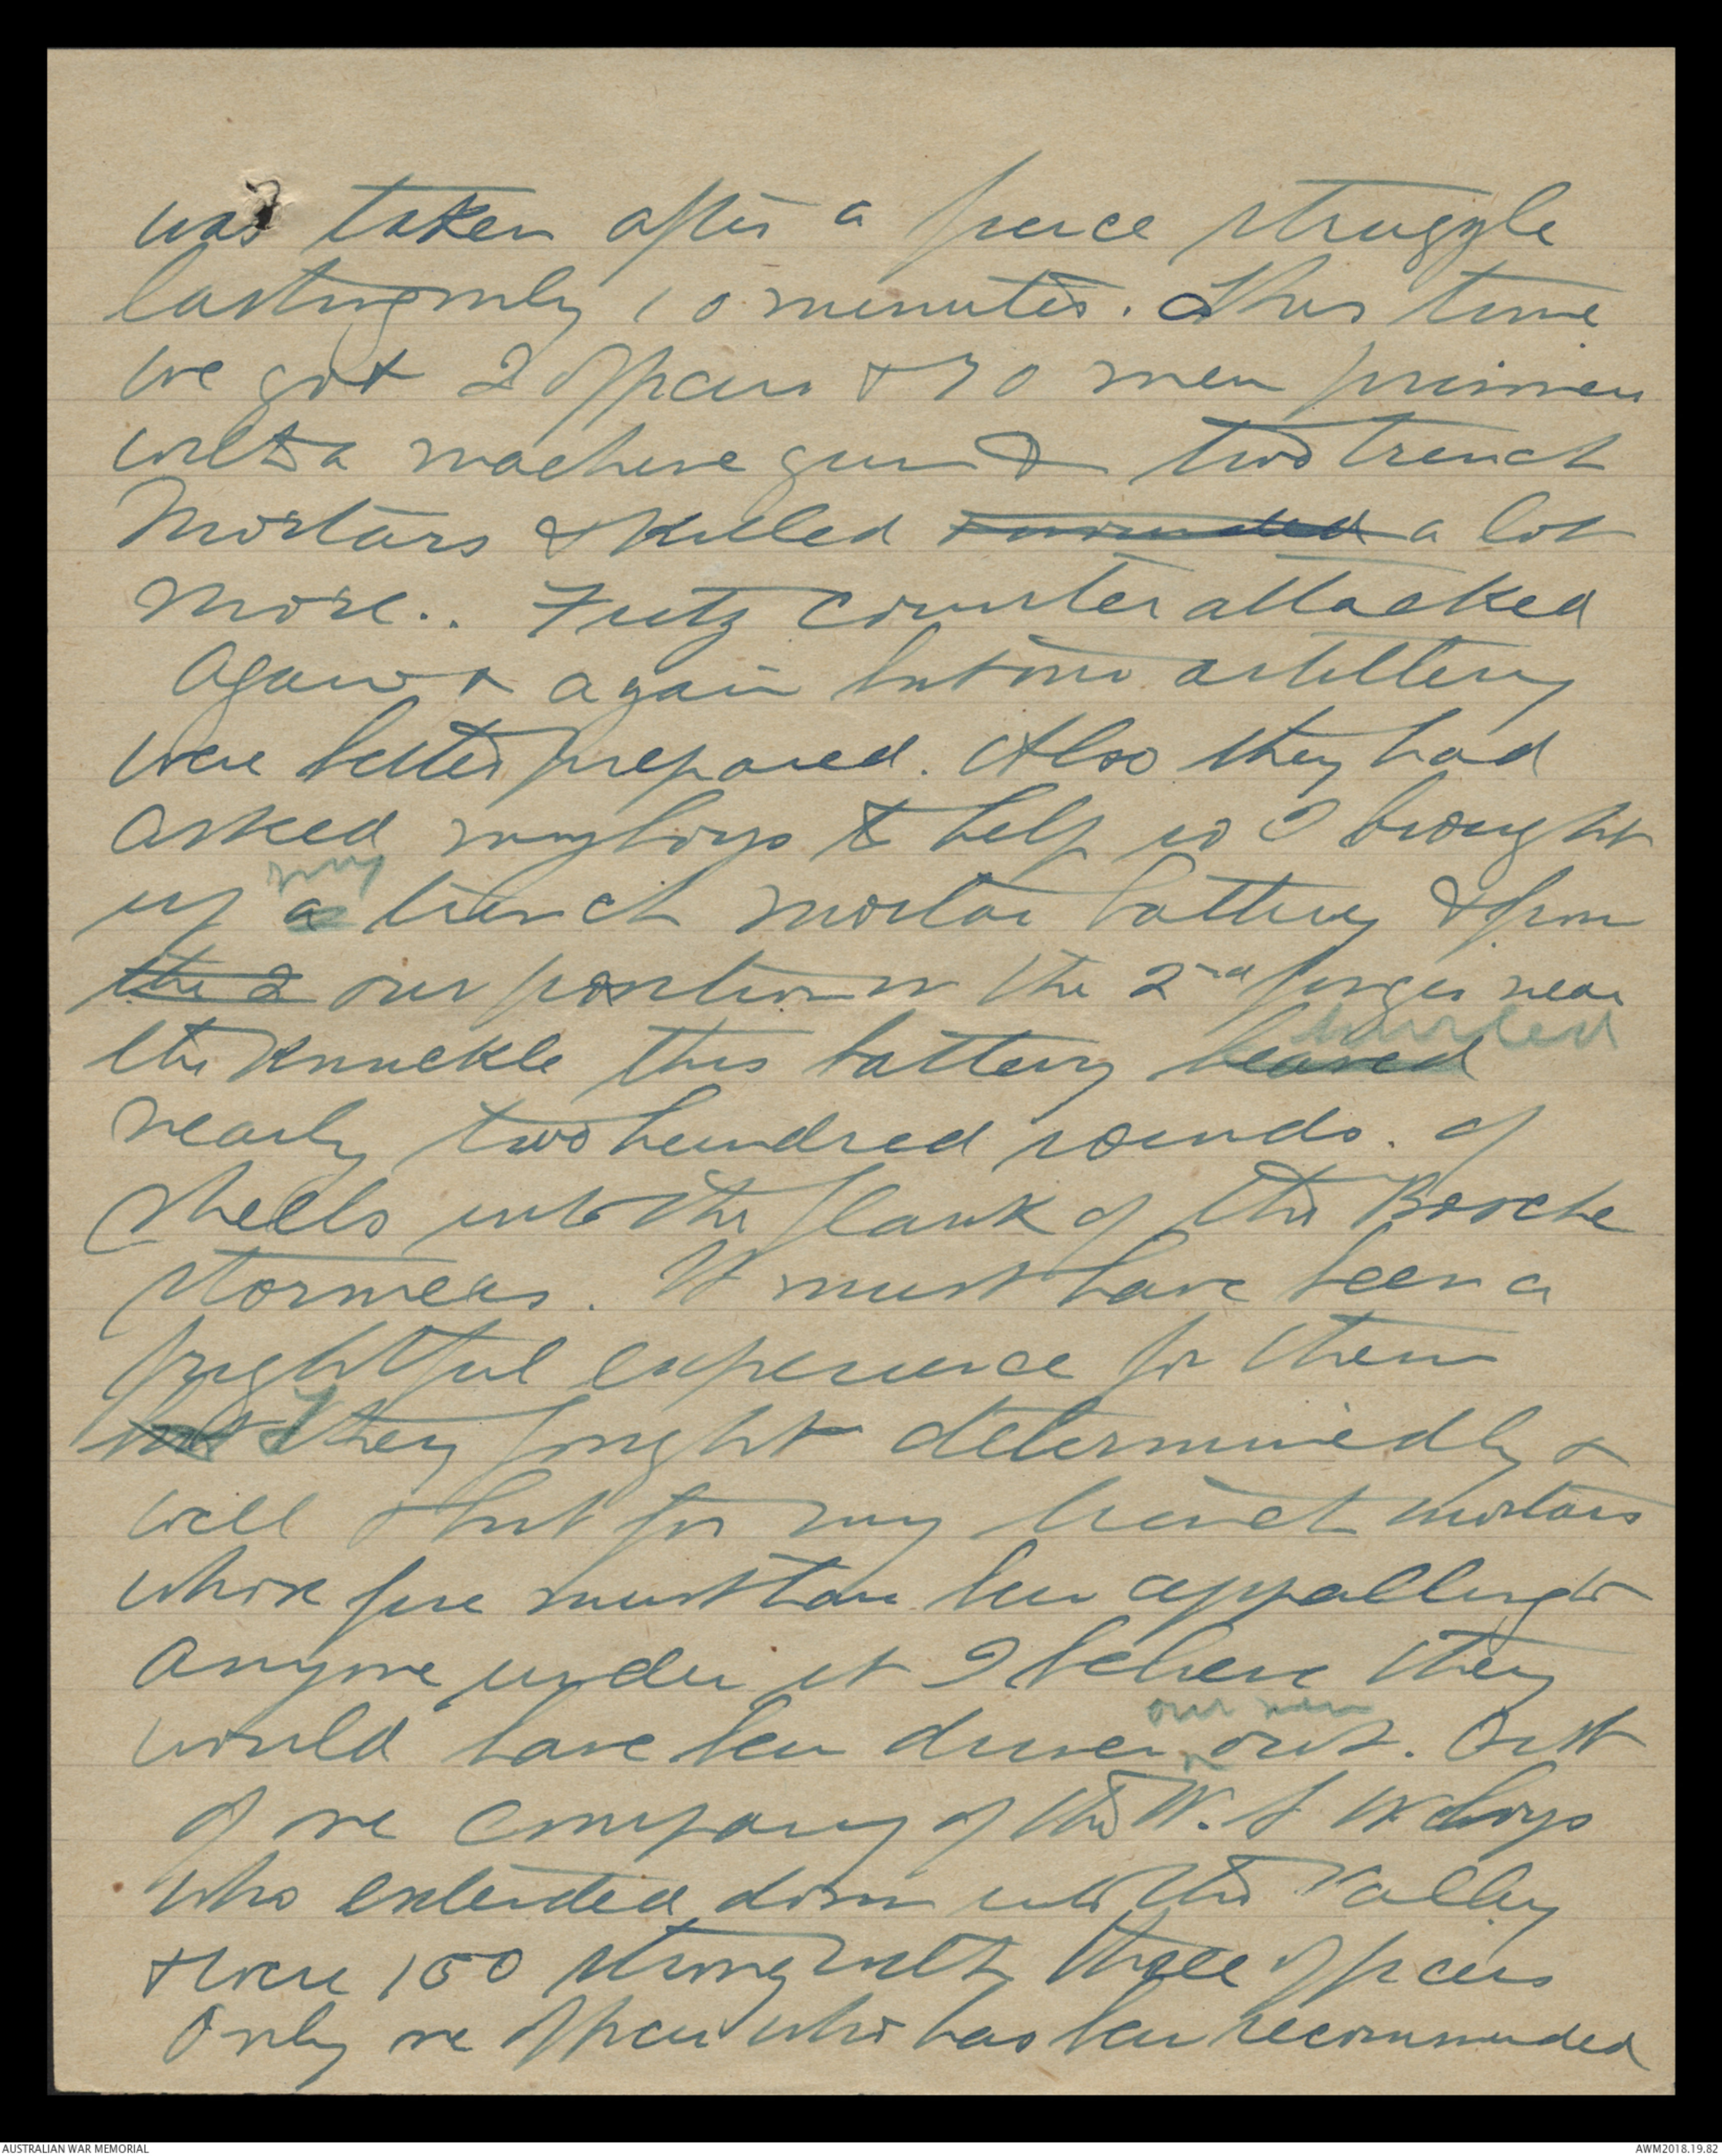 was taken after a fierce struggle
lasting only 10 minutes. This time
we got 2 officers & 70 men prisoners
with a machine gun & two trench
Mortars & killed & wounded a lot
more.. Fritz counter attacked
again & again but our artillery
were better prepared. Also they had
asked my boys to help so I brought
my
up a trench mortar battery & from
the 2 our position in the 2nd finger near
hurled
the Knuckle this battery
nearly two hundred rounds. of
shells into the flank of the Bosche
stormers. It must have been a
frightful experience for them
but They fought determinedly &
well & but for my trench mortars
whose fire must have been appalling to
anyone under it I believe they
our men
would have been driven out. Out
of one company of the N. S W boys
who extended down into the valley
& were 150 strong with three officers
Only one officer who has been recommended
AUSTRALIAN WAR MEMORIAL
AWM2018.19.82